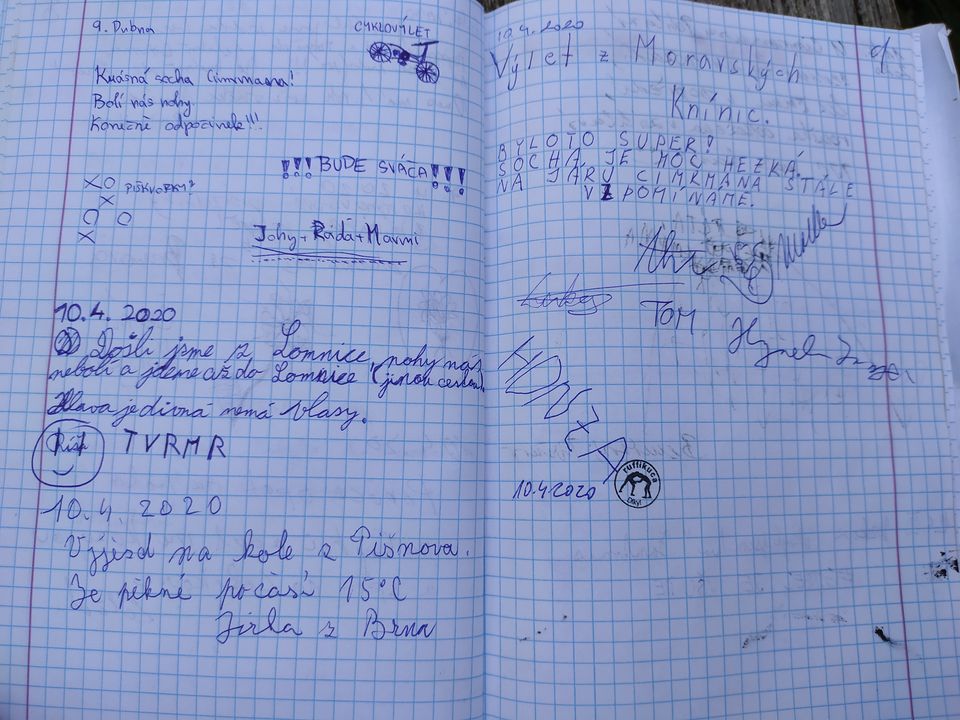 9. Dubna
CYKLOVÝLET
Krásná socha Cimrmana!
Bolí nás nohy.
Konečně odpočinek!!!
!!! BUDE SVÁČA!!!
XO PIŠKVORKY?
X
O O
X
Johy + Ráďa + Mavmi
10.4. 2020
Došli jsme z Lomnice, nohy nás
nebolí a jdeme až do Lomnice (jinou cestou
Hlava je divná nemá vlasy.
TVRMR
10.4. 2020
Výjezd na kole z Tišnova.
Je pěkné počasí 15°C
Jirka z Brna
10.4.2020
Výlet z Moravských
Knínic.
BYLOTO SUPER!
SOCHA JE MOC HEZKÁ.
NA JARU CIMRMANA STÁLE
VZPOMÍNÁME.
TOM
Hynek
10.4.2020
ruffikuca